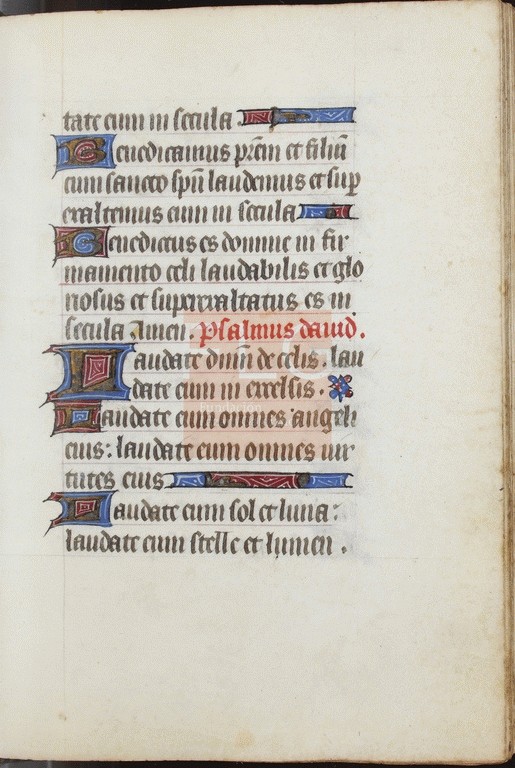 tate eum in secula
Benedicamus prẽm et filiũ
cum sancto spũ laudemus et sup
eraltemus eum in secula
Benedictus es domine in fir
mamento celi laudabilis et glo
riosus et superexaltatus es in
secula Amen. Psalmus dauid.
Laudate dnm̃ de celis. lau
date eum in excelsis.
Laudate eum omnes angeli
eius: laudate eum omnes uir
tutes eius
Laudate eum sol et luna:
laudate eum stelle et lumen.